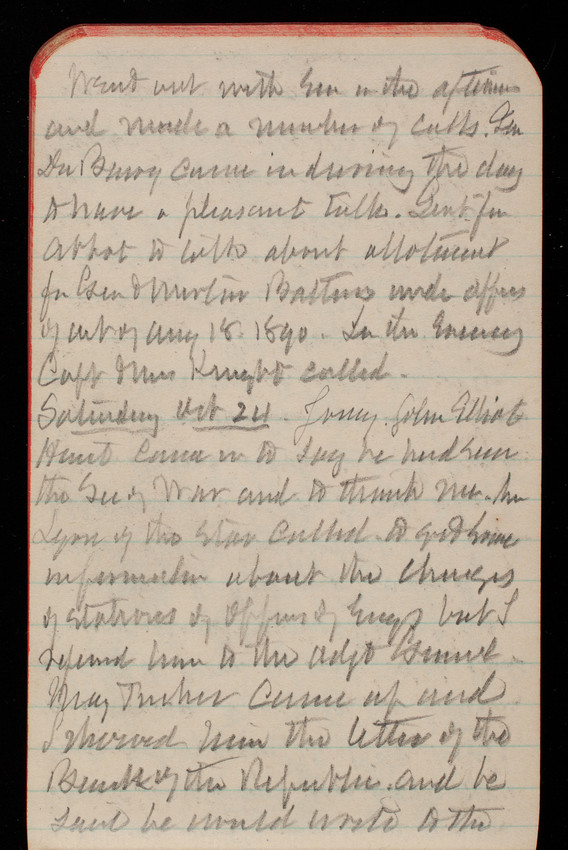 Went out with Eva in the afternoon
and made a number of calls. Gen
Du Barry came in during the day
to have a pleasant talk. Sent for
Abbot to talk about allotment
for Gun & Mortar Batteries under
of act of Aug 18. 1890. In the Evening
Capt & Mrs Knight called.
Saturday Oct 24. John Elliot
came in to say he had seen
the Sec of War and to thank me. Mr
of the Star called to get some
information about the changes
of stations of Officers of Engrs but I
referred him to the Adjt General.
Maj Tucker came up and
I showed him the letter of the
Bank of the Republic. and he
said he would write to the